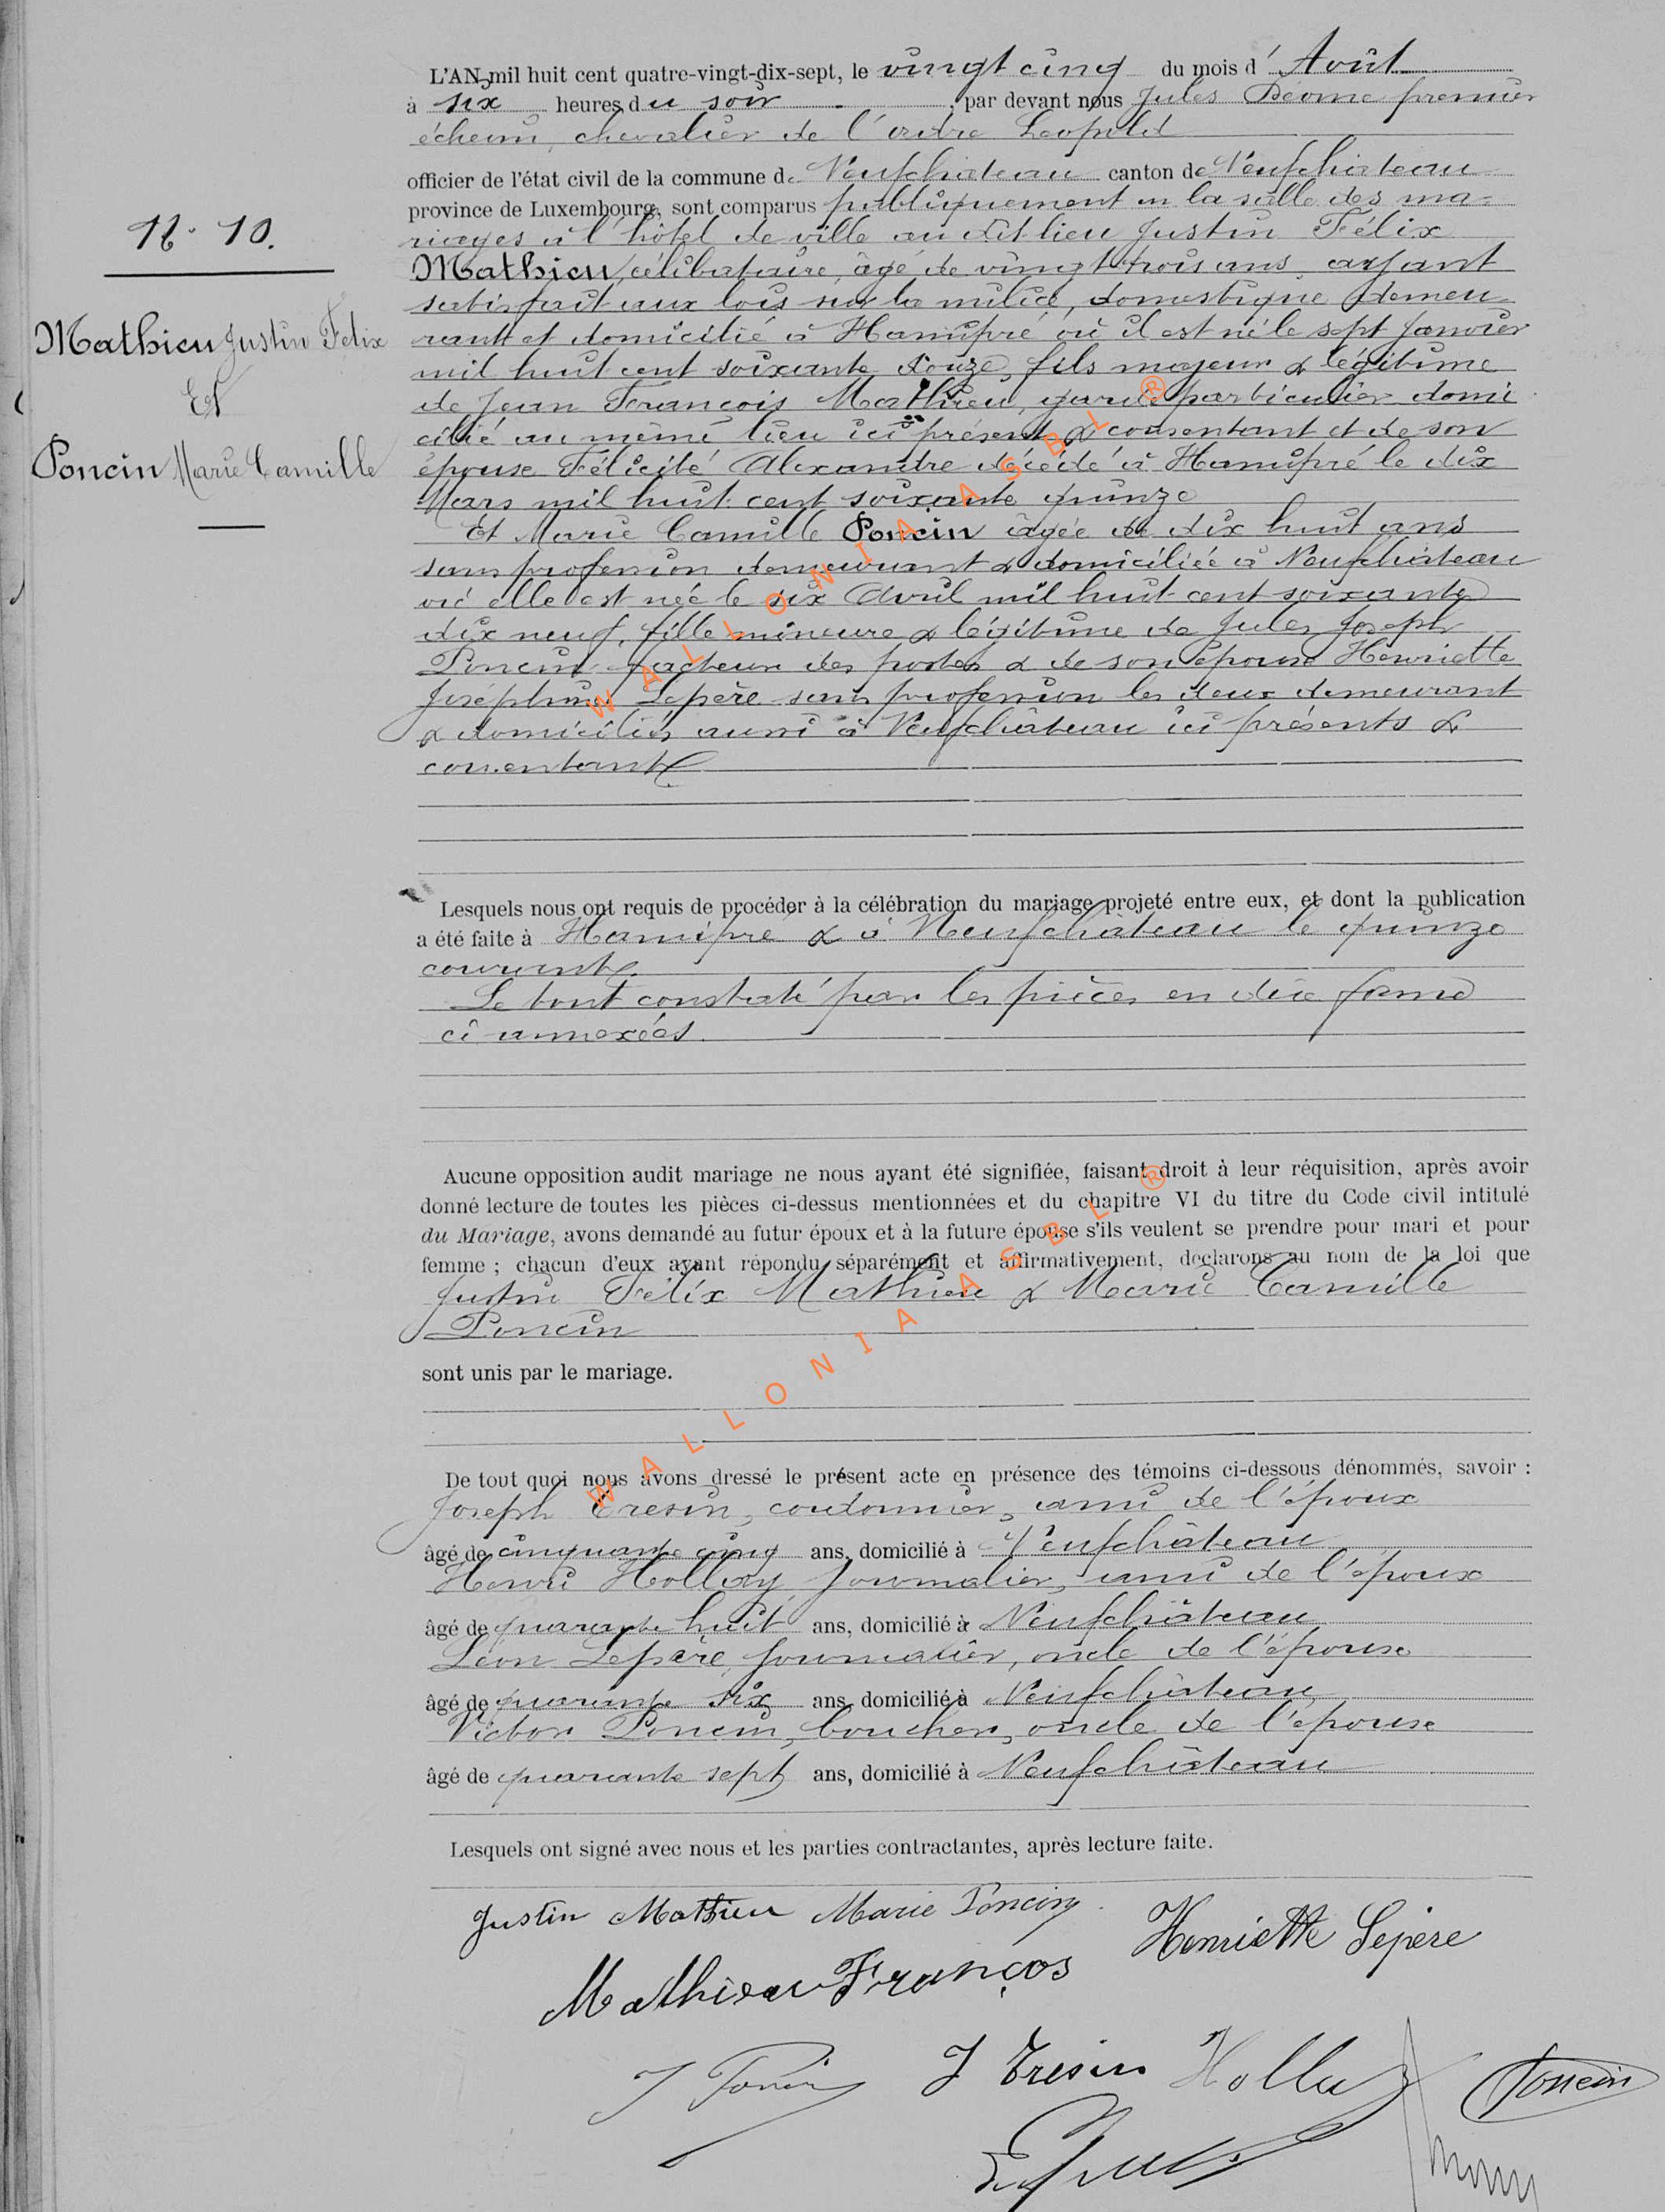 L'AN mil huit cent quatre-vingt-dix-sept, le vingt cinq du mois d' Août
à six heures du soir , par devant nous Jules premier
échevin, chevalier de l'ordre Léopold
officier de l'état civil de la commune de Neufchâteau canton de Neufchâteau
province de Luxembourg, sont comparus publiquement en la salle des ma-
riages à l'hôtel de ville au dit lieu Justin Félix
Mathieu, célibataire, âgé de vingt trois ans, ayant
satisfait aux lois sur la milice, domestique demeu-
rant et domicilié à Hamipré où il est né le sept Janvier
mil huit cent soixante douze, fils majeur & légitime
de Jean François Mathieu, garde particulier domi
cilié au même lieu ici présent & consentant et de son
épouse Félicité Alexandre décédé à Hamipré le dix
Mars mil huit cent soixante quinze
Et Marie Camille Poncin âgée de dix huit ans
sans profession demeurant & domiciliée à Neufchâteau
où elle est née le six Avril mil huit cent soixante
dix neuf, fille mineure & légitime de Jules Joseph
Poncin facteur des postes & de son épouse Henriette
Joséphine Lepère sans profession les deux demeurant
& domiciliés aussi à Neufchâteau ici présents &
consentants
N° 10.
Mathieu Justin Félix
Et
Poncin Marie Camille
Lesquels nous ont requis de procéder à la célébration du mariage projeté entre eux, et dont la publication
a été faite à Hamipré & à Neufchâteau le quinze
courant.
Le tout constaté par les pièces en due forme
ci annexées.
Aucune opposition audit mariage ne nous ayant été signifiée, faisant droit à leur réquisition, après avoir
donné lecture de toutes les pièces ci-dessus mentionnées et du chapitre VI du titre du Code civil intitulé
du Mariage, avons demandé au futur époux et à la future épouse s'ils veulent se prendre pour mari et pour
femme ; chacun d'eux ayant répondu séparément et affirmativement, declarons au nom de la loi que
Justin Félix Mathieu & Marie Camille
Poncin
sont unis par le mariage.
De tout quoi nous avons dressé le présent acte en présence des témoins ci-dessous dénommés, savoir :
Joseph Tresin, cordonnier, ami de l'époux
âgé de cinquante cinq ans, domicilié à Neufchâteau
Henri Hollay journalier, ami de l'époux
âgé de quarante huit ans, domicilié à Neufchâteau
Léon Lepère, journalier, oncle de l'épouse
âgé de quarante six ans, domicilié à Neufchâteau
Victor Poncin, boucher, oncle de l'épouse
âgé de quarante sept ans, domicilié à Neufchâteau
Lesquels ont signé avec nous et les parties contractantes, après lecture faite.
Justin Mathieu Marie Poncin
Henriette Lepère
Mathieu Franços
J Poncin J Tresin Hollay Poncin
WALLONIA ASBL ®
WALLONIA ASBL ®